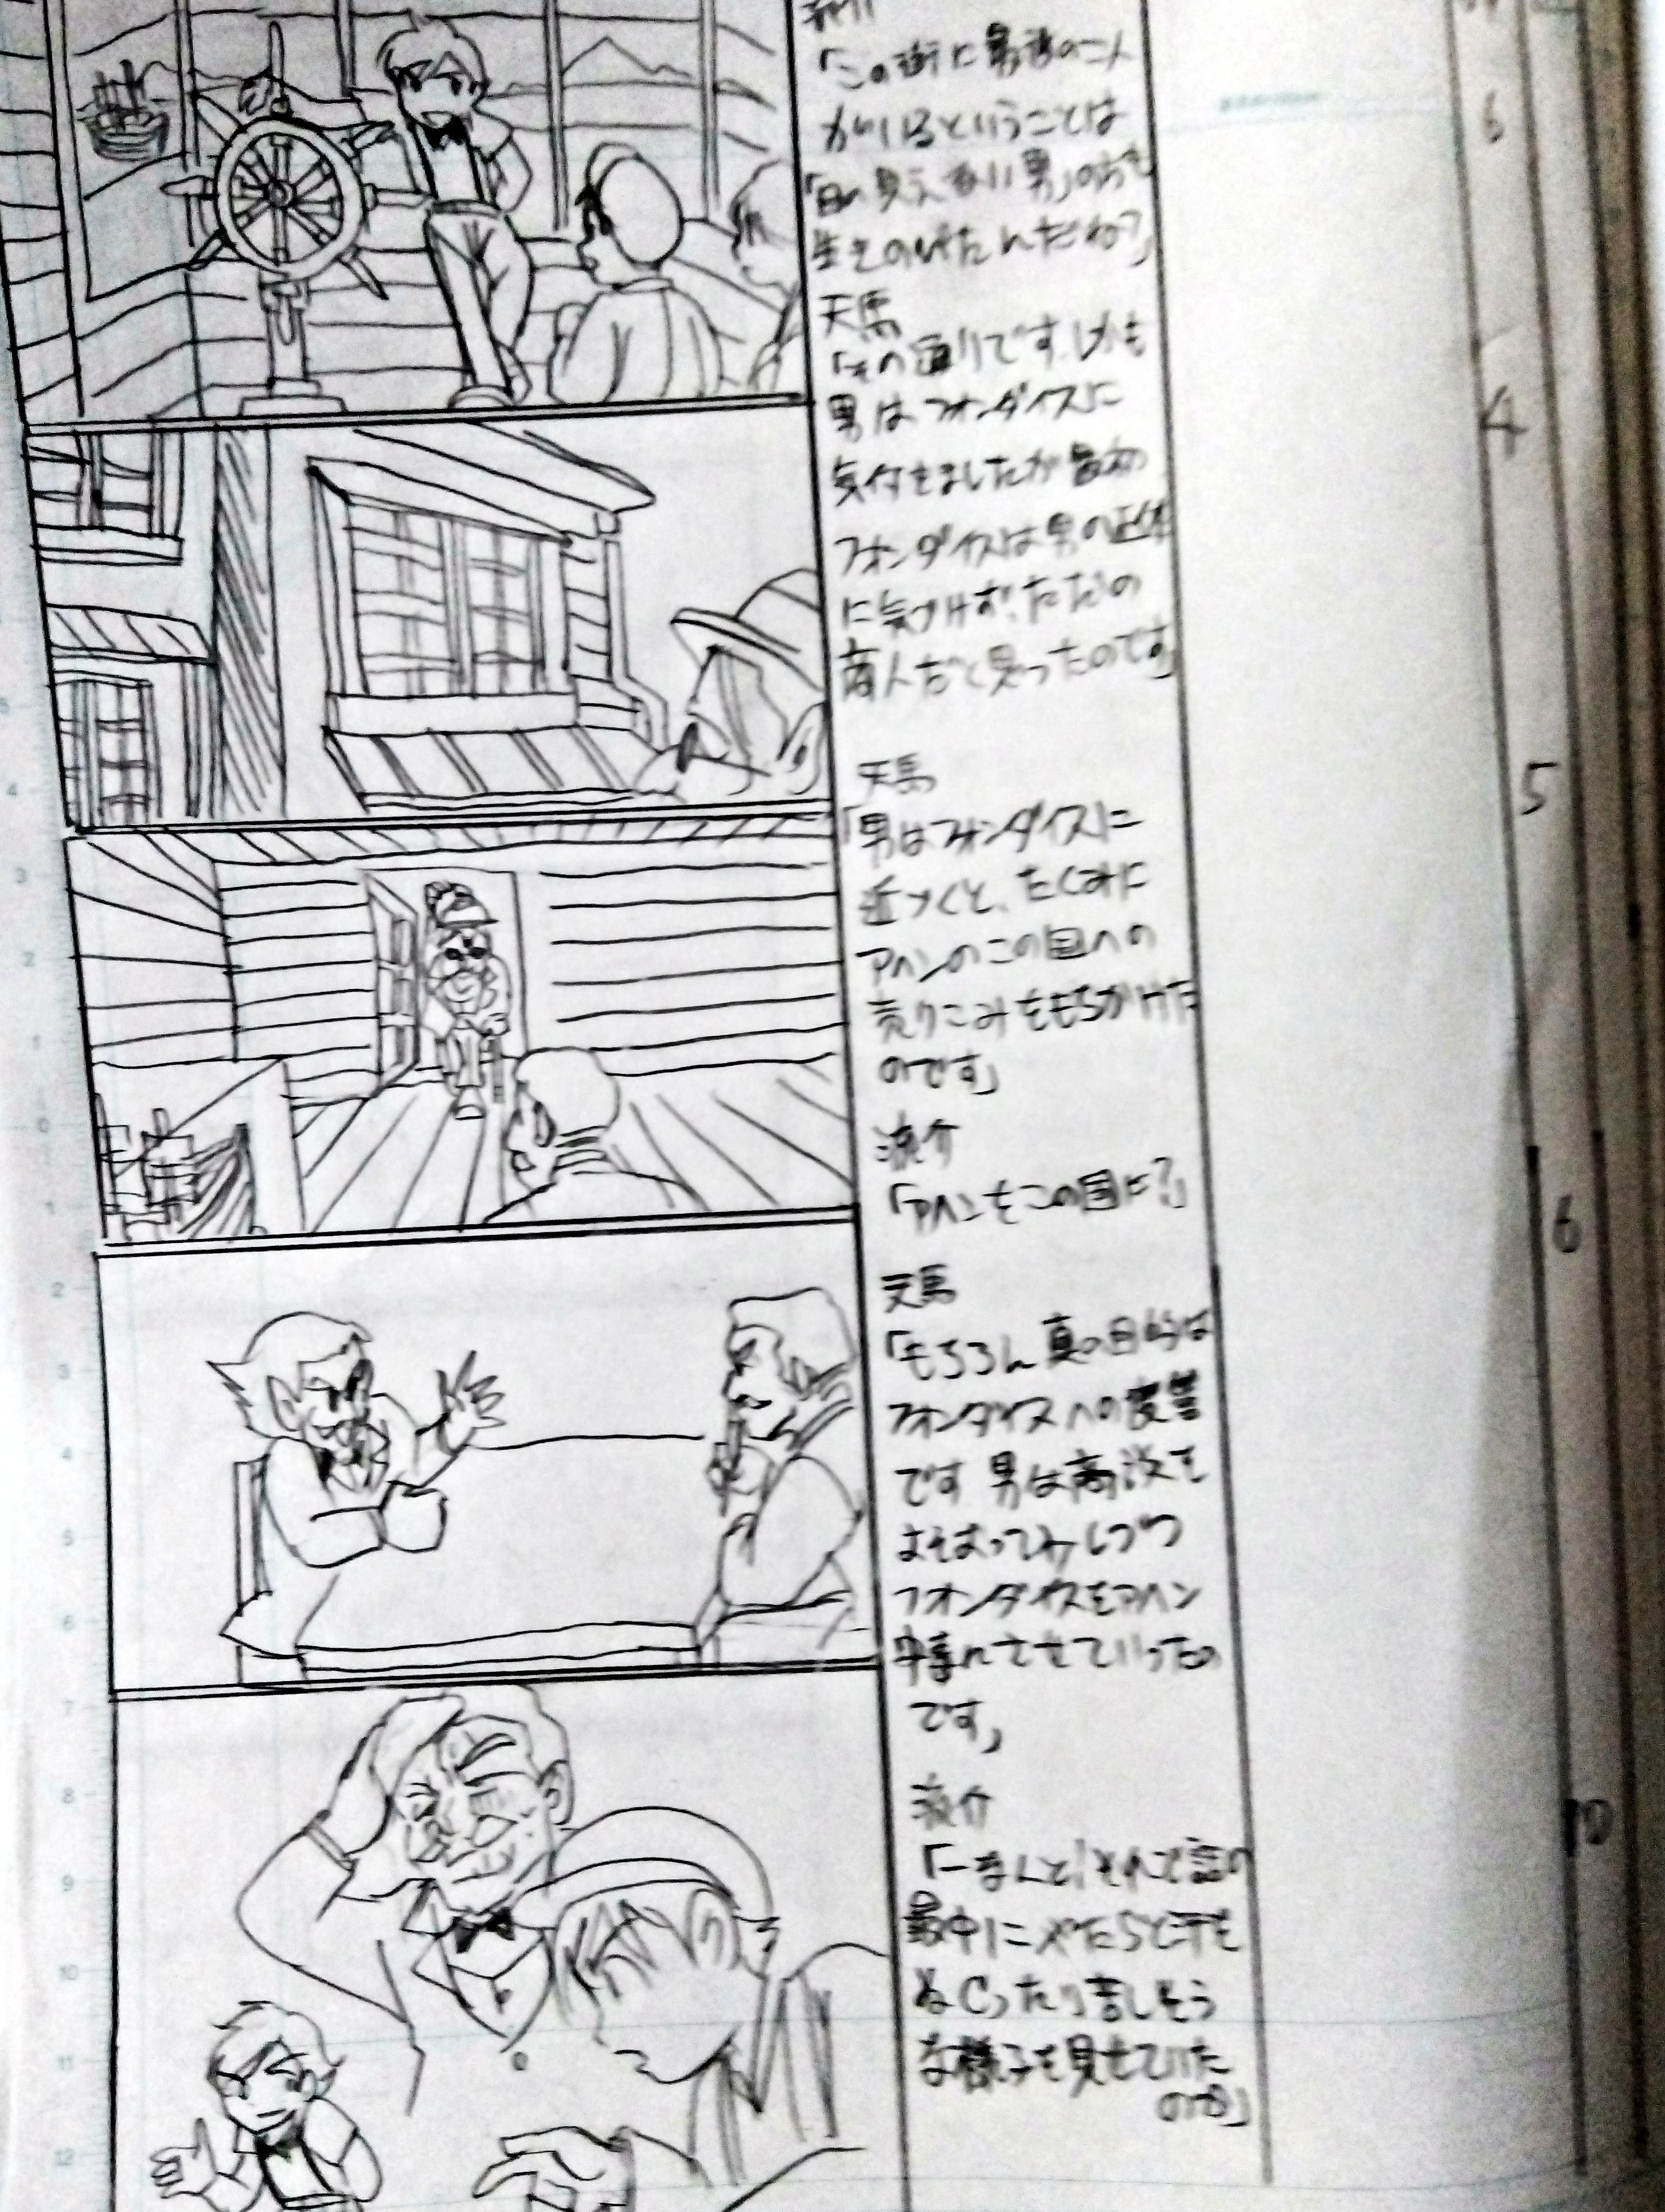 「この街に最後の二人
がいるということは
「目に見えない男」の方も
生きのびたんだね?」
天馬
「その通りです。しかも
男はフォンダイスに
気付きましたが最初
フォンダイスは男の正体
に気づけず、ただの
商人だと思ったのです」
天馬
「男はフォンダイスに
近づくと、たくみに
アヘンのこの国への
売りこみをもちかけた
のです」
流介
「アヘンをこの国に?」
天馬
「もちろん真の目的は
フォンダイスへの復讐
です 男は商談を
フォンダイスをアヘン
中毒にさせていったの
です」
流介
「―なんと!それで話の
最中にやたらと汗を
ぬぐったり苦しそう
な様子を見せていた
のか」
6
4
5
6
10
2
3
4
5
6
7
8
9
10
11
12